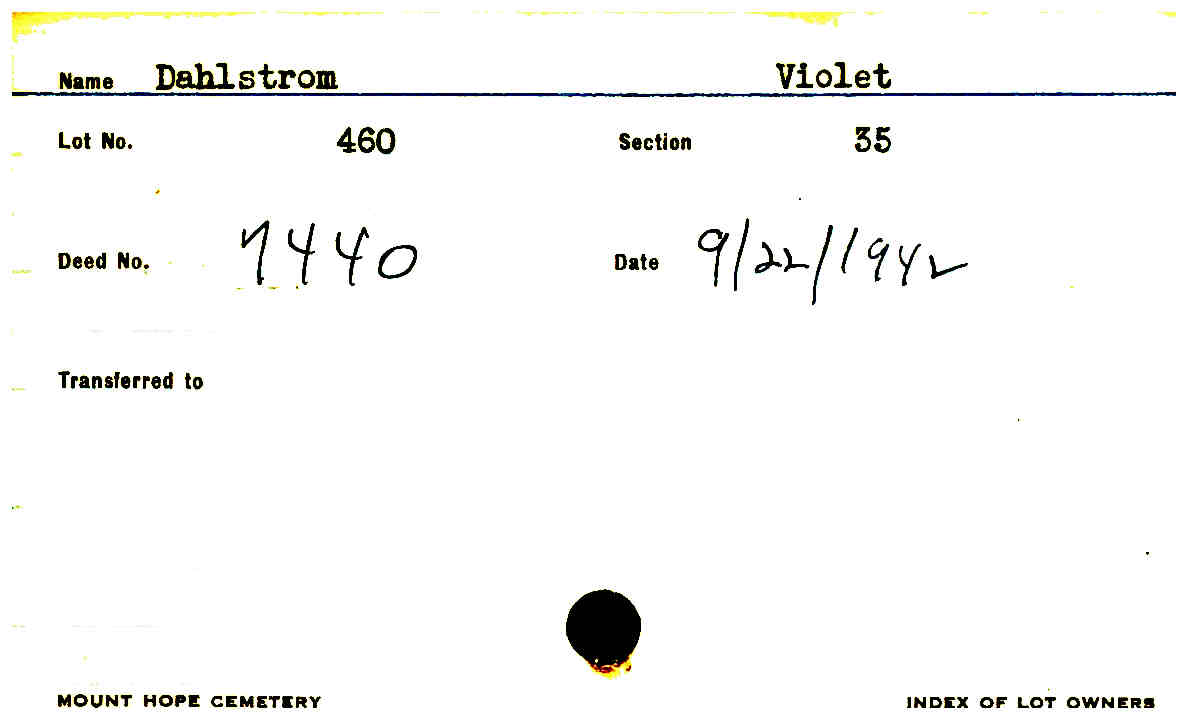 Name Dahlstrom Violet
Lot No. 460 Section 35
Deed No. 7440 Date 9/22/1942
Transferred to
MOUNT HOPE CEMETERY INDEX OF LOT OWNERS